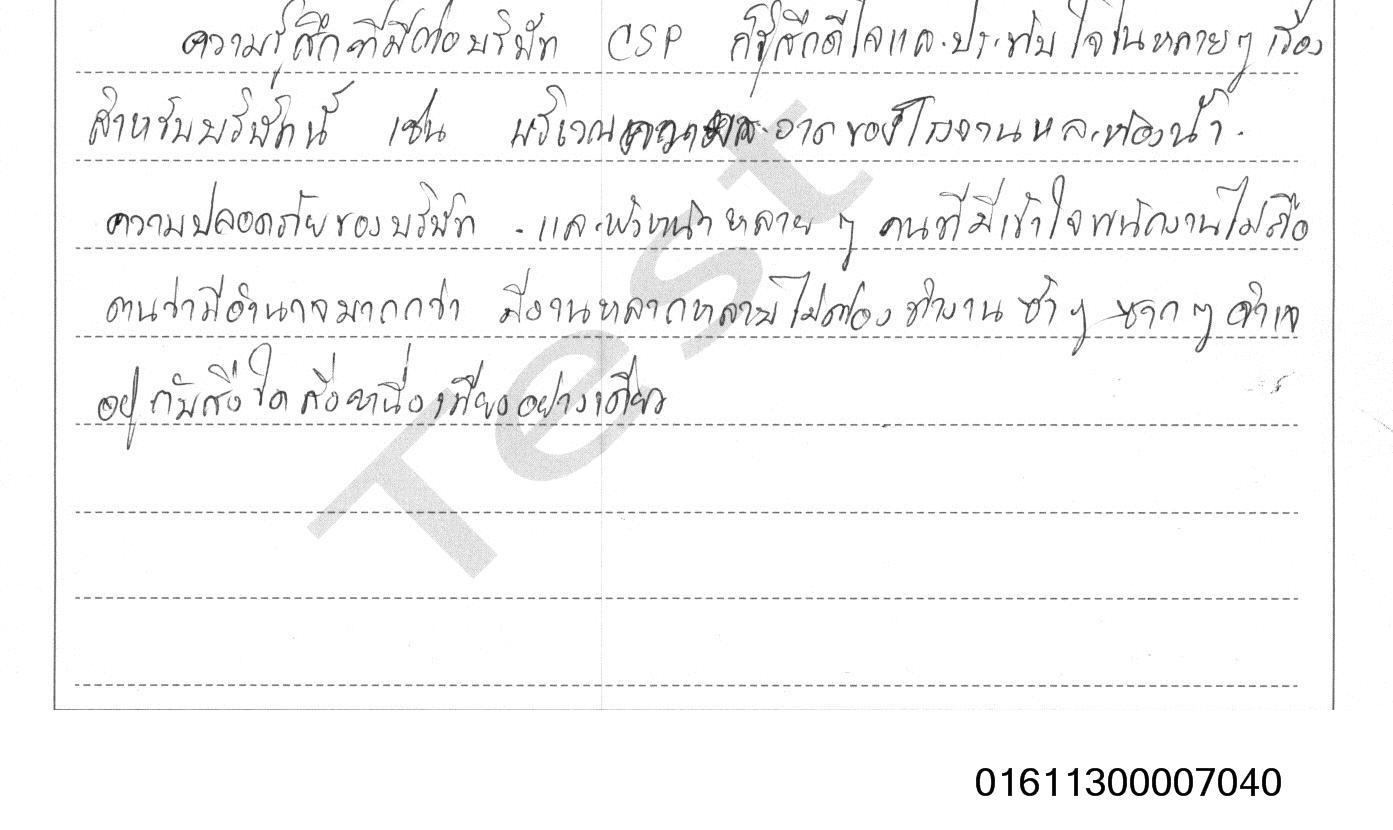 ความรู้สึกที่มีต่อบริษัท CSP ก็รู้สึกดีใจและประทับใจในหลายๆ เรื่อง
สำหรับบริษัทนี้ เช่น บริเวณ สะอาดของโรงงานและห้องน้ำ
ความปลอดภัยของบริษัท และหัวหน้าหลายๆ คนที่มีเข้าใจพนักงานไม่ถือ
ตนว่ามีอำนาจมากกว่า มีงานหลากหลายไม่ต้องทำงานซ้ำๆ ซากๆ จำเจ
อยู่กับสิ่งใดสิ่งหนึ่งเพียงอย่างเดียว
Test
01611300007040